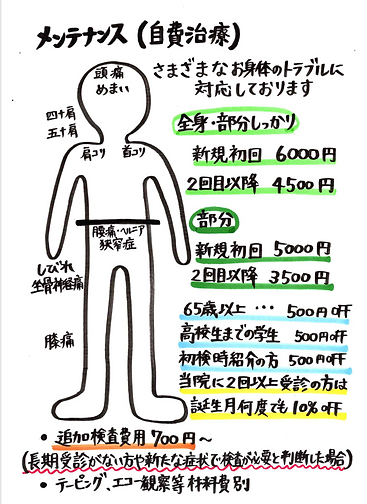 メンテナンス(自費治療)
さまざまなお身体のトラブルに
対応しております
頭痛
めまい
四十肩
五十肩
肩コリ 首コリ
腰痛・ヘルニア
狭窄症
しびれ
坐骨神経痛
膝痛
全身・部分しっかり
新規初回 6000円
2回目以降 4500円
部分
新規初回 5000円
2回目以降 3500円
65歳以上 … 500円OFF
高校生までの学生 500円OFF
初検時紹介の方 500円OFF
当院に2回以上受診の方は
誕生月何度でも10%OFF
• 追加検査費用700円〜
(長期受診がない方や新たな症状で検査が必要と判断した場合)
• テーピング、エコー観察等材料費別